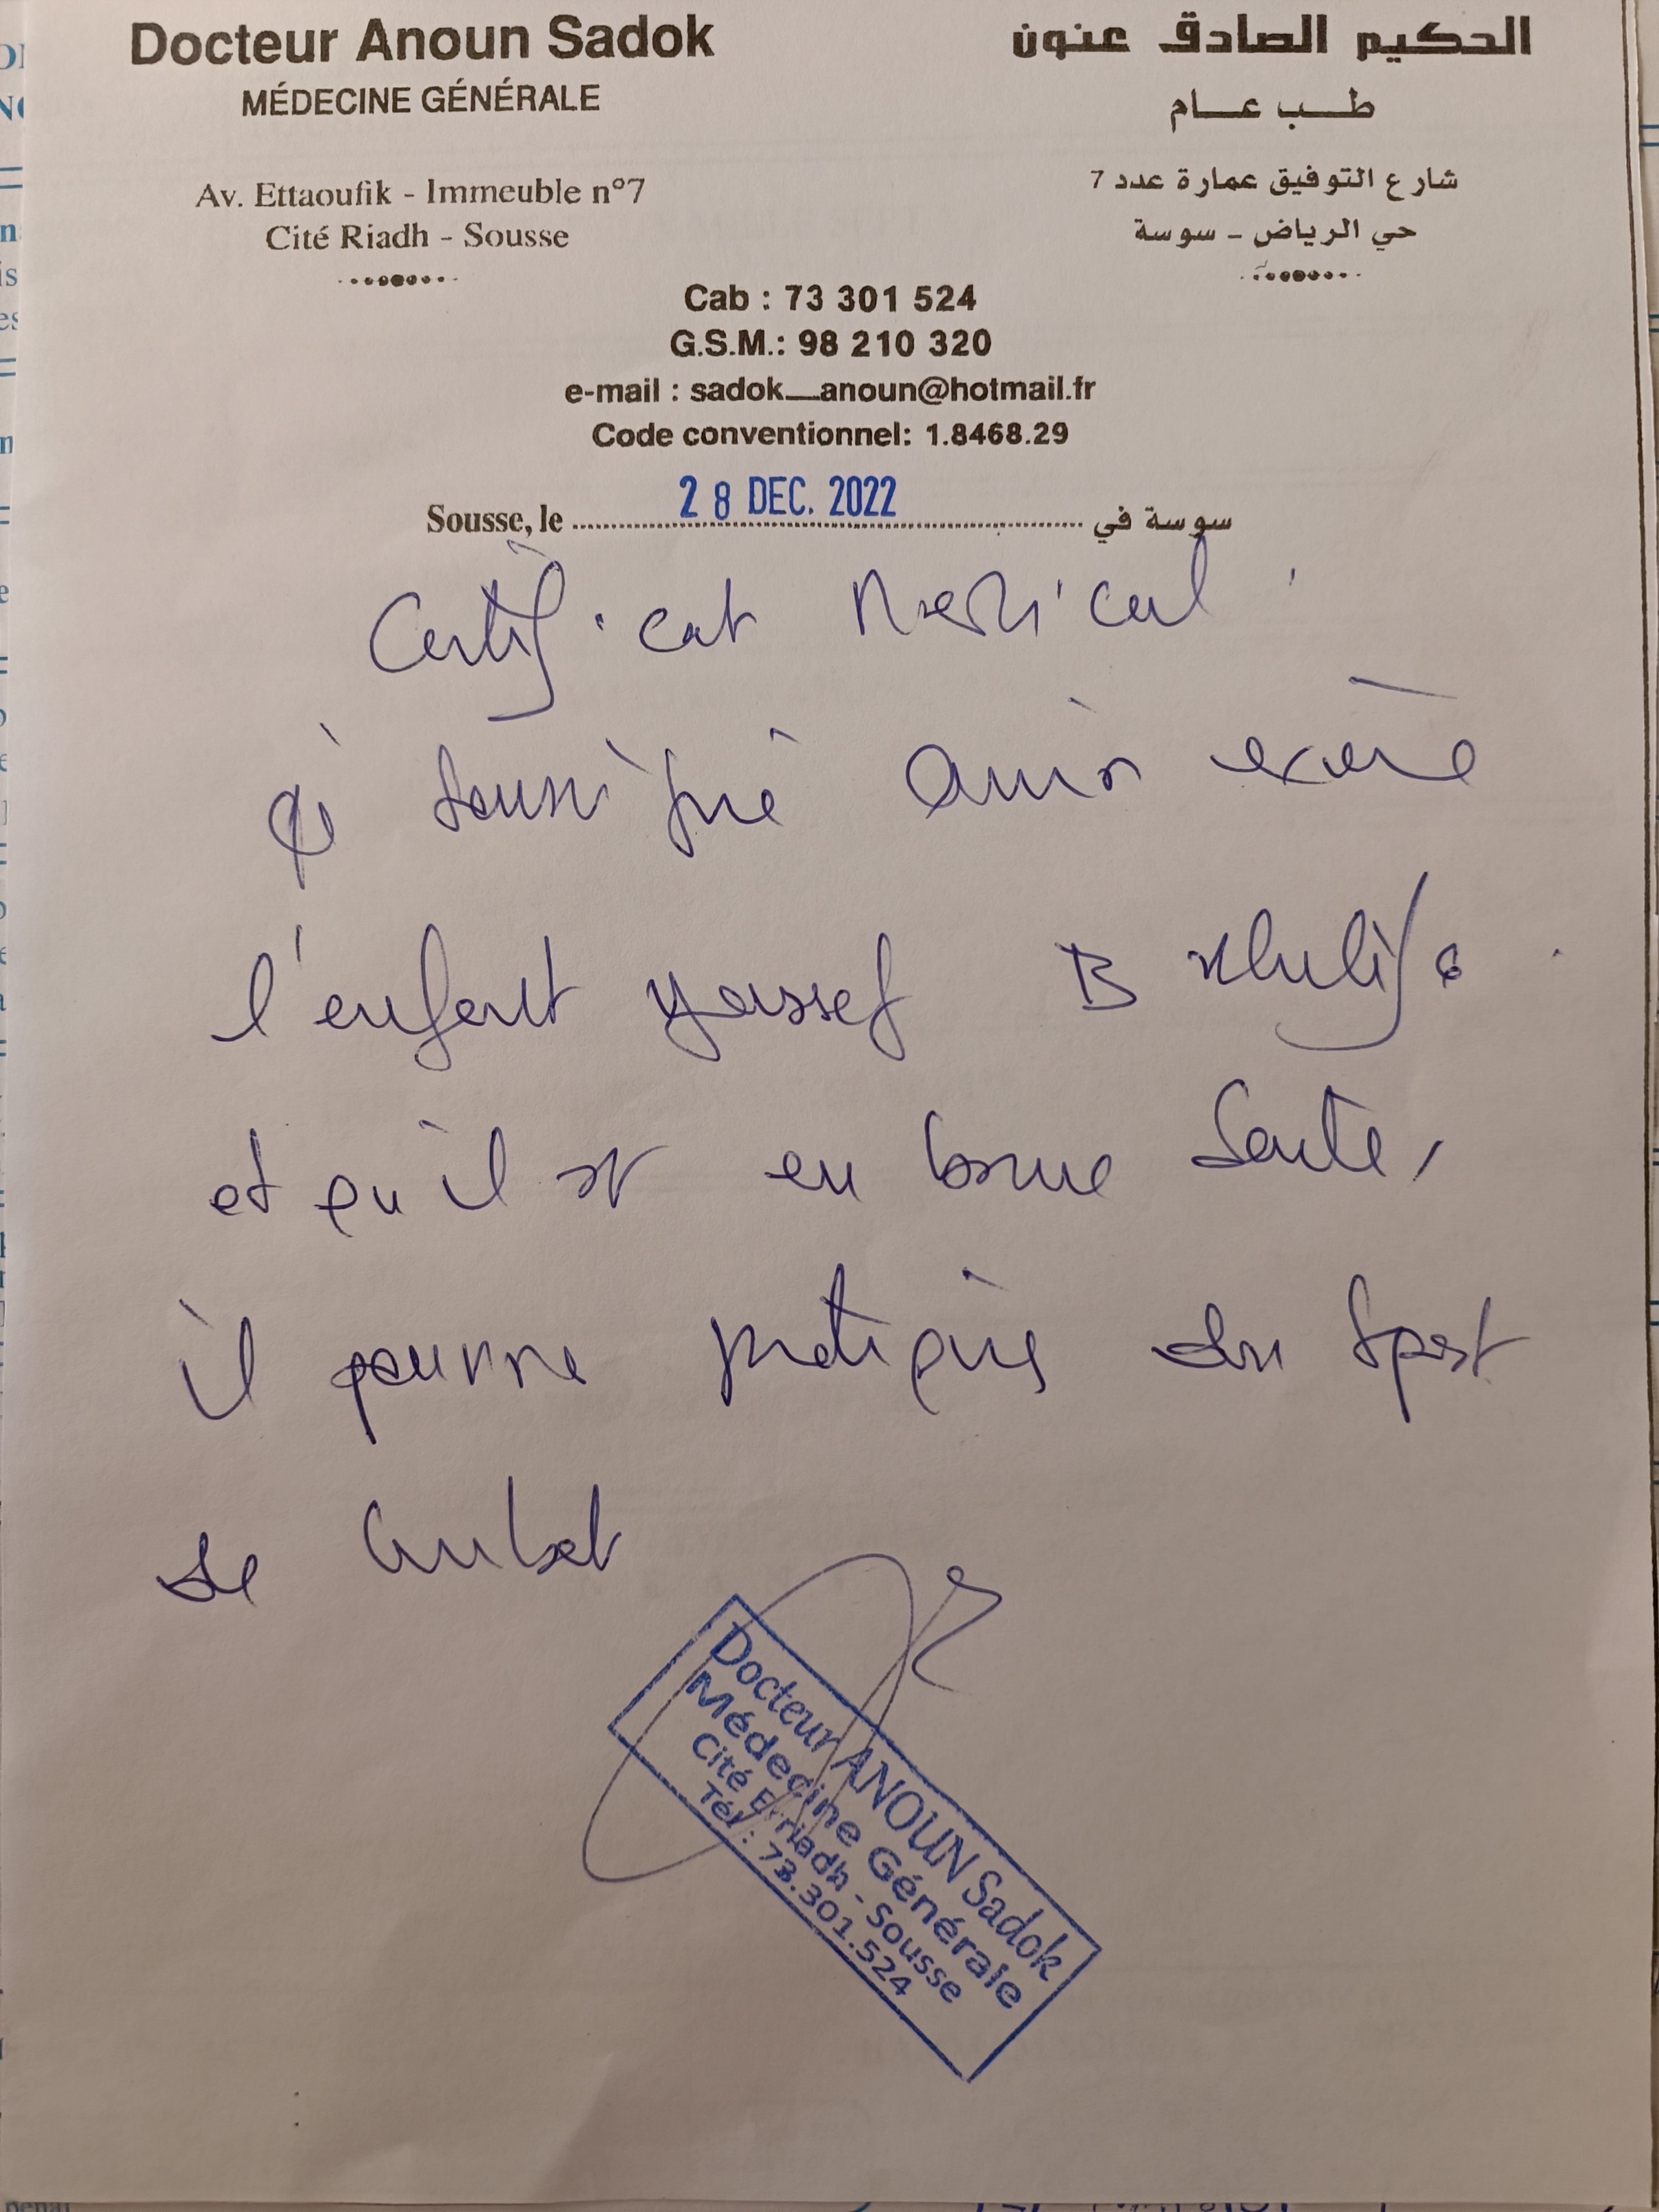 Docteur Anoun Sadok
MÉDECINE GÉNÉRALE
Av. Ettaoufik - Immeuble n°7
Cité Riadh - Sousse
الحكيم الصادق عنون
طب عام
شارع التوفيق عمارة عدد 7
حي الرياض - سوسة
Cab : 73 301 524
G.S.M.: 98 210 320
e-mail : sadok_anoun@hotmail.fr
Code conventionnel: 1.8468.29
Sousse, le 28 DEC. 2022 سوسة في
Certificat Medical
soussigné avoir examiné
l'enfant Youssef B Khalifa
et qu'il est en bonne santé,
il pourra pratiquer du sport
de combat
Docteur ANOUN Sadok
Médecine Générale
Cité Erriadh - Sousse
Tél : 73.301.524